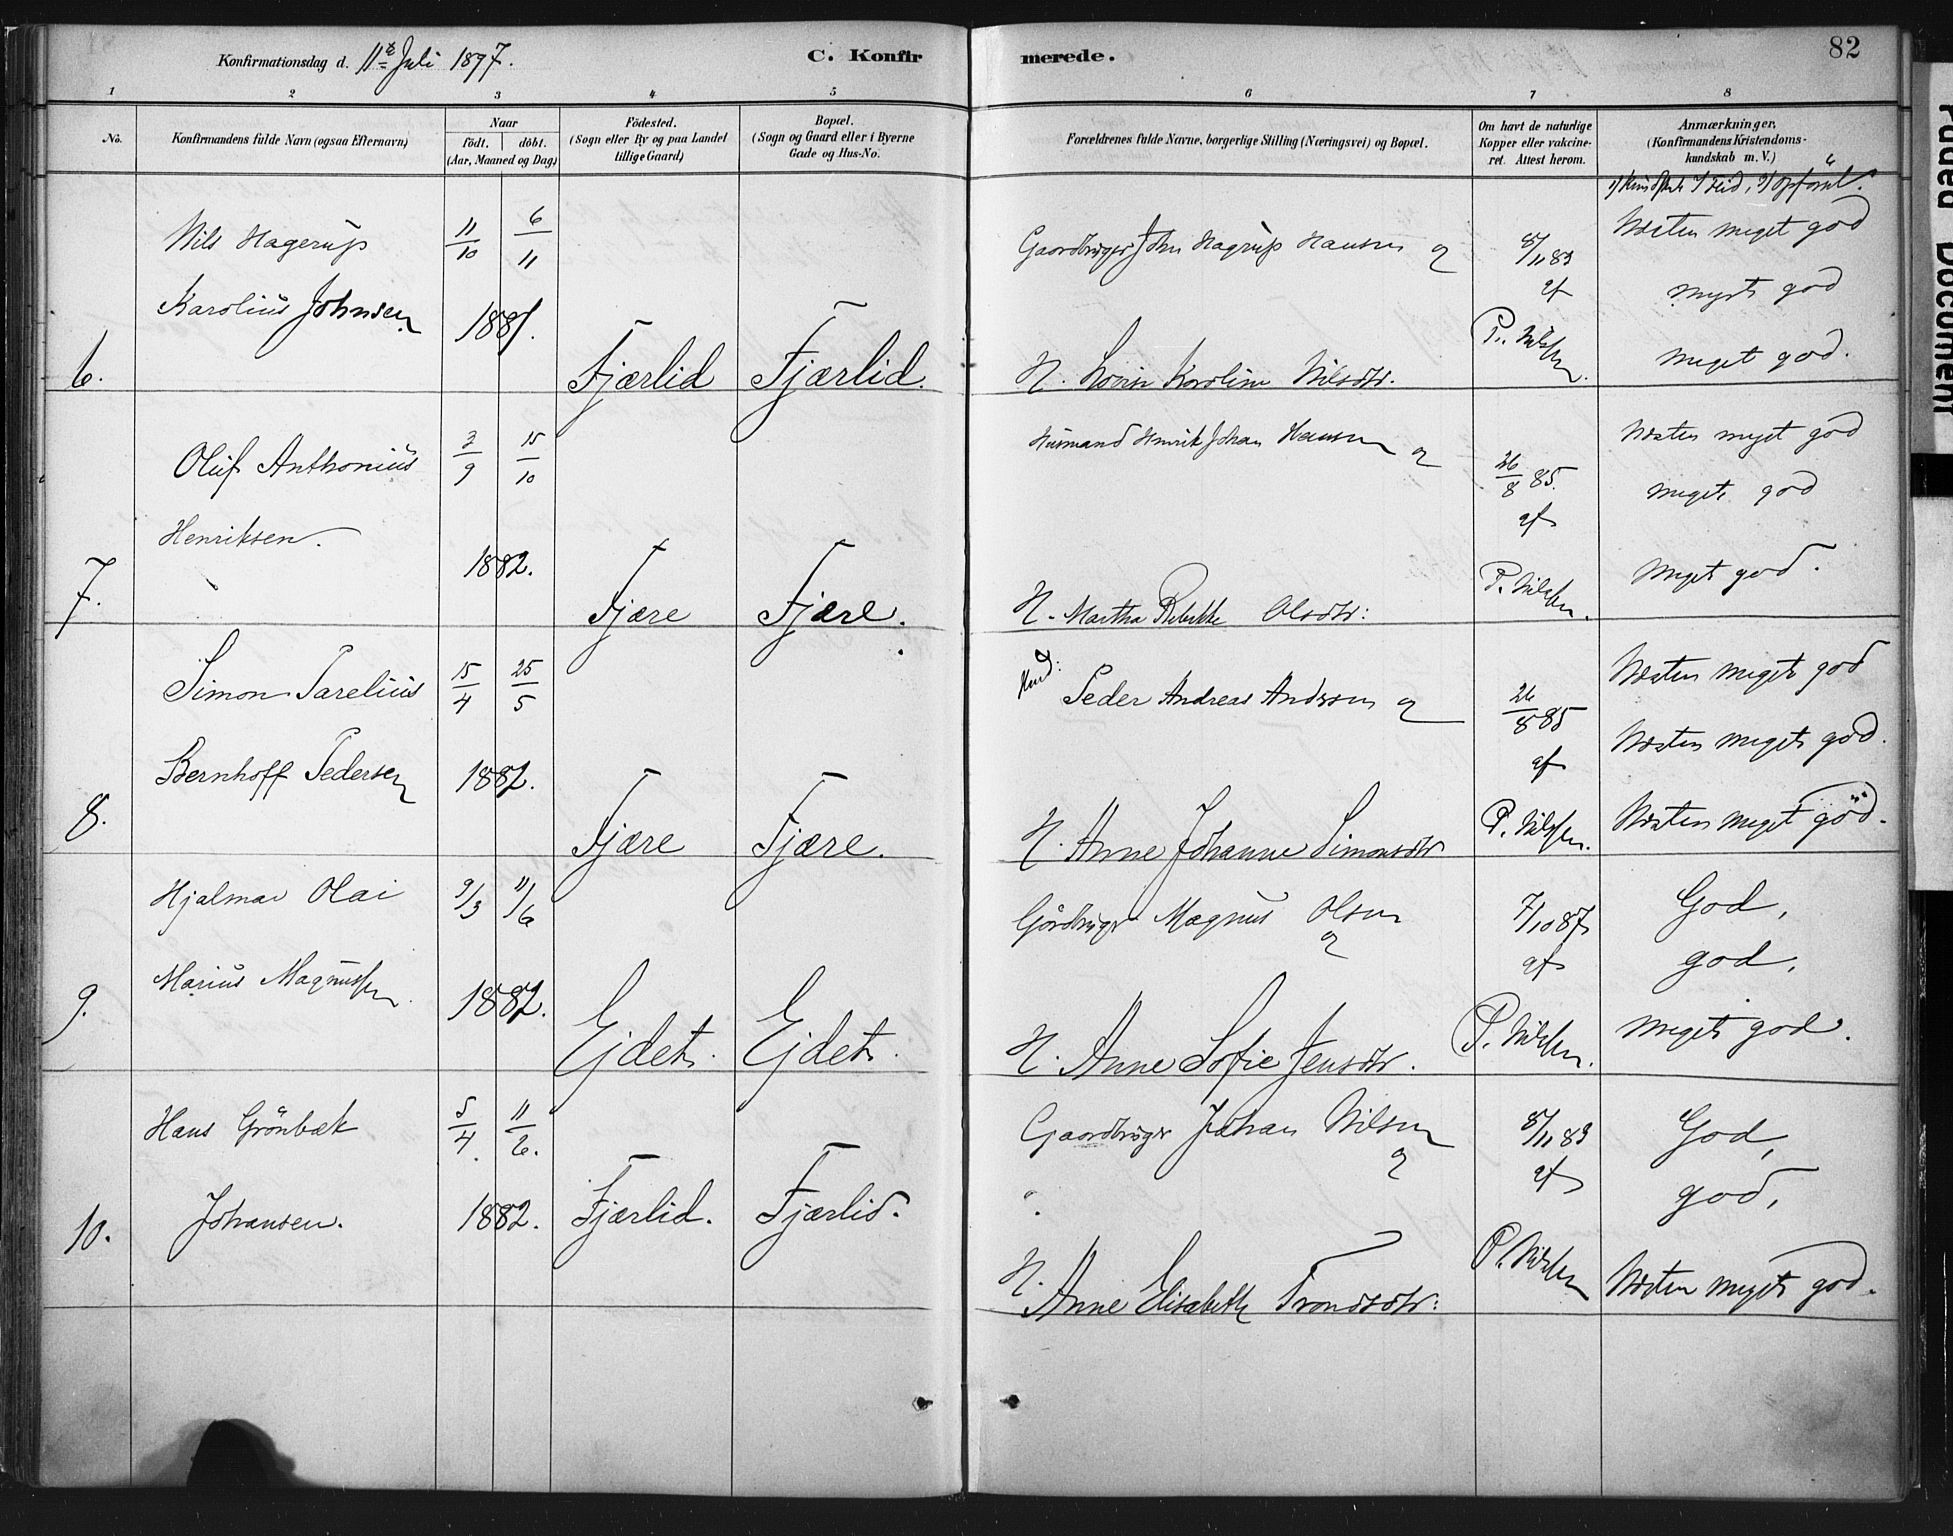 Konfirmationsdag d. 11te Juli 1897.
C. Konfirmerede.
82
1 2 3 4 5 6 7 8
No.
Konfirmandens fulde Navn (ogsaa Efternavn)
Naar
født. døbt.
(Aar, Maaned og Dag)
Födested.
(Sogn eller By og paa Landet
tillige Gaard)
Bopæl.
(Sogn og Gaard eller i Byerne
Gade og Hus-No.
Forældrenes fulde Navne, borgerlige Stilling (Næringsvei) og Bopæl.
Om havt de naturlige
Kopper eller vakcine-
ret. Attest herom.
Anmærkninger,
(Konfirmandens Kristendoms-
kundskab m. V.)
1) Kundskab 2) Flid, 3) Opførsel.
6.
Nils Hagerup
Karolius Johnsen
11/10 6/11
1881.
Fjærlid
Fjærlid.
Gaardbruger John Hagrup Hansen og
H. Lovise Karoline Nilsdtr.
8/11 83
af
P. Nilssen.
Næsten meget god
meget god
meget god.
7.
Oluf Anthonius
Henriksen.
3/9 15/10
1882.
Fjære
Fjære.
Husmand Henrik Johan Hansen og
H. Martha Rebekka Olsdtr:
26/8 85.
af
P. Nilssen.
Næsten meget god
meget god
meget god.
8.
Simon Parelius
Bernhoff Pedersen
15/4 25/5
1882.
Fjære
Fjære.
Husmd: Peder Andreas Andersen og
H. Anne Johanne Simonsdtr
26/8 85
af
P. Nilssen.
Næsten meget god
Næsten meget god.
Næsten meget god.
9.
Hjalmar Olai
Marius Magnussen.
9/3 11/6
1882.
Ejdet.
Ejdet.
Gårdbruger Magnus Olsen
og
H. Anne Sofie Jensdtr.
7/10 87
af
P. Nilssen.
God,
god,
meget god.
10.
Hans Grönbæk
Johansen.
5/4 11/6.
1882.
Fjærlid.
Fjærlid.
Gaardbruger Johan Nilsen
og
H. Anne Elisabeth Trondsdtr:
8/11 83
af
P. Nilssen
God,
god,
Næsten meget god.
Faded Document